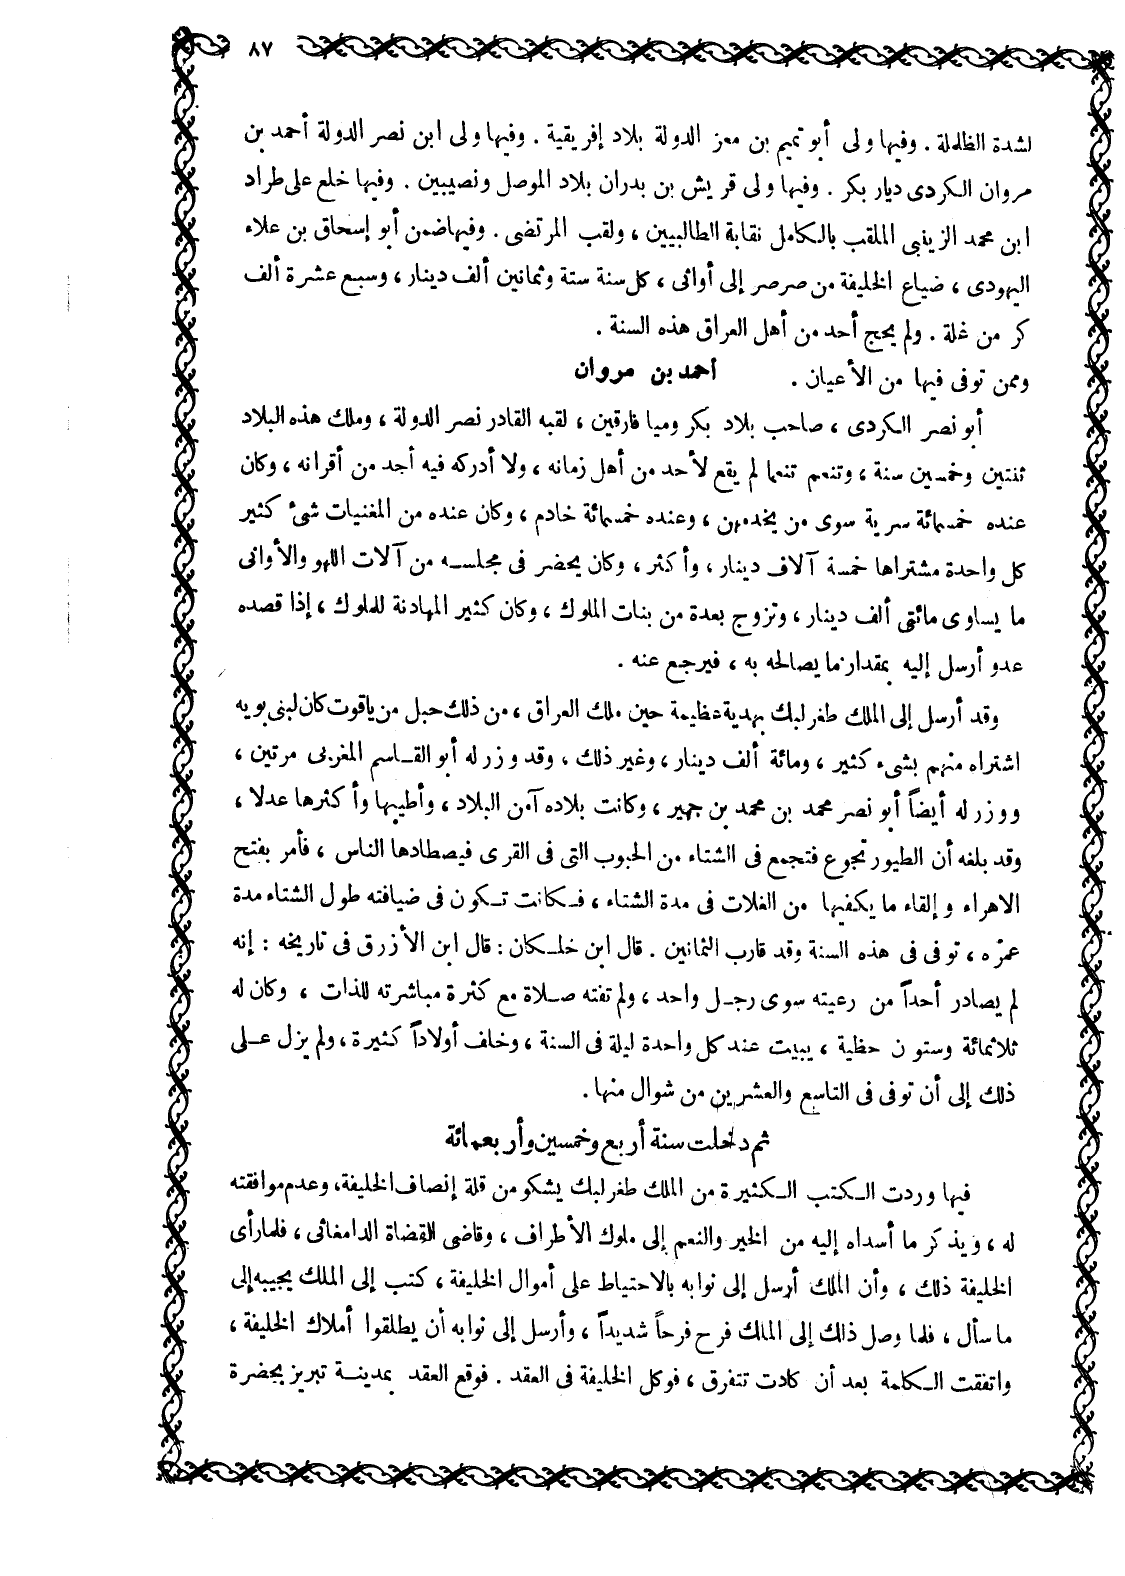 ٨٧
لشدة الظلمة . وفيها ولى أبو تميم بن معز الدولة بلاد إفريقية . وفيها ولى ابن نصر الدولة أحمد بن
مروان الكردى ديار بكر . وفيها ولى قريش بن بدران بلاد الموصل ونصيبين . وفيها خلع على طراد
ابن محمد الزينبى الملقب بالكامل نقابة الطالبيين ، ولقب المرتضى . وفيها ضمن أبو إسحاق بن علاء
اليهودى ، ضياع الخليفة من صرصر إلى أوانى ، كل سنة ستة وثمانين ألف دينار ، وسبع عشرة ألف
كر من غلة . ولم يحج أحد من أهل العراق هذه السنة .
وممن توفى فيها من الأعيان . أحمد بن مروان
أبو نصر الكردى ، صاحب بلاد بكر وميا فارقين ، لقبه القادر نصر الدولة ، وملك هذه البلاد
ثنتين وخمسين سنة ، وتنعم تنعما لم يقع لأحد من أهل زمانه ، ولا أدركه فيه أجد من أقرانه ، وكان
عنده خمسمائة سرية سوى من يخدمهن ، وعنده خمسمائة خادم ، وكان عنده من المغنيات شئ كثير
كل واحدة مشتراها خمسة آلاف دينار ، وأكثر ، وكان يحضر فى مجلسه من آلات اللهو والأوانى
ما يساوى مائتى ألف دينار ، وتزوج بعدة من بنات الملوك ، وكان كثير المهادنة للملوك ، إذا قصده
عدو أرسل إليه بمقدار ما يصالحه به ، فيرجع عنه .
وقد أرسل إلى الملك طغرلبك بهدية عظيمة حين ملك العراق ، من ذلك حبل من ياقوت كان لبنى بويه
اشتراه منهم بشىء كثير ، ومائة ألف دينار ، وغير ذلك ، وقد وزر له أبو القاسم المغربى مرتين ،
ووزر له أيضاً أبو نصر محمد بن محمد بن جهير ، وكانت بلاده آمن البلاد ، وأطيبها وأكثرها عدلا ،
وقد بلغه أن الطيور تجوع فتجمع فى الشتاء من الحبوب التى فى القرى فيصطادها الناس ، فأمر بفتح
الاهراء وإلقاء ما يكفيها من الغلات فى مدة الشتاء ، فكانت تكون فى ضيافته طول الشتاء مدة
عمره ، توفى فى هذه السنة وقد قارب الثمانين . قال ابن خلكان : قال ابن الأزرق فى تاريخه : إنه
لم يصادر أحداً من رعيته سوى رجل واحد ، ولم تفته صلاة مع كثرة مباشرته للذات ، وكان له
ثلاثمائة وستون حظية ، يبيت عند كل واحدة ليلة فى السنة ، وخلف أولاداً كثيرة ، ولم يزل على
ذلك إلى أن توفى فى التاسع والعشرين من شوال منها .
ثم دخلت سنة أربع وخمسين وأربعمائة
فيها وردت الكتب الكثيرة من الملك طغرلبك يشكو من قلة إنصاف الخليفة ، وعدم موافقته
له ، ويذكر ما أسداه إليه من الخير والنعم إلى ملوك الأطراف ، وقاضى القضاة الدامغانى ، فلما رأى
الخليفة ذلك ، وأن الملك أرسل إلى نوابه بالاحتياط على أموال الخليفة ، كتب إلى الملك يجيبه إلى
ما سأل ، فلما وصل ذلك إلى الملك فرح فرحاً شديداً ، وأرسل إلى نوابه أن يطلقوا أملاك الخليفة ،
واتفقت الكلمة بعد أن كادت تتفرق ، فوكل الخليفة فى العقد . فوقع العقد بمدينة تبريز بحضرة